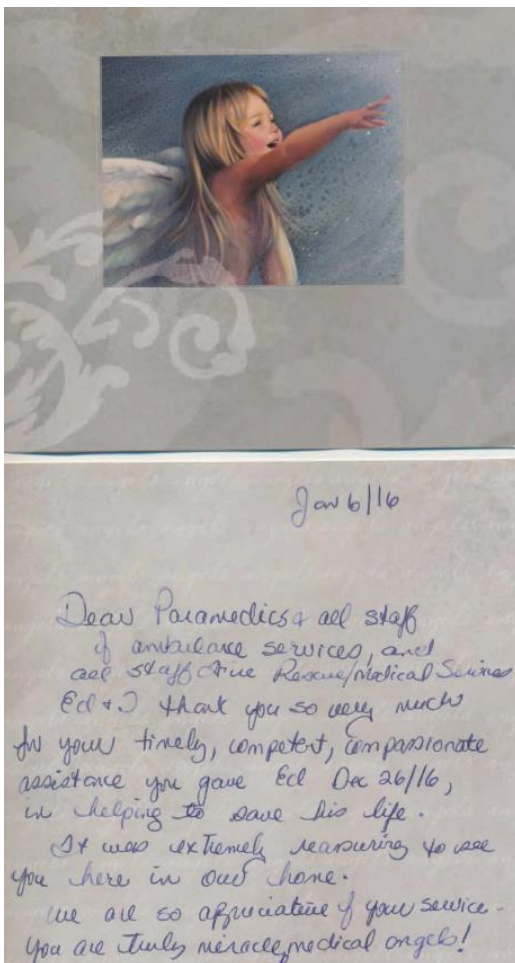 Jan 6/16
Dear Paramedics & all staff
of ambulance services, and
all staff Fire Rescue/Medical Services
Ed & I thank you so very much
for your timely, competent, compassionate
assistance you gave Ed Dec 26/16,
in helping to save his life.
It was extremely reassuring to see
you here in our home.
We are so appreciative of your service.
You are truly miracle, medical angels!